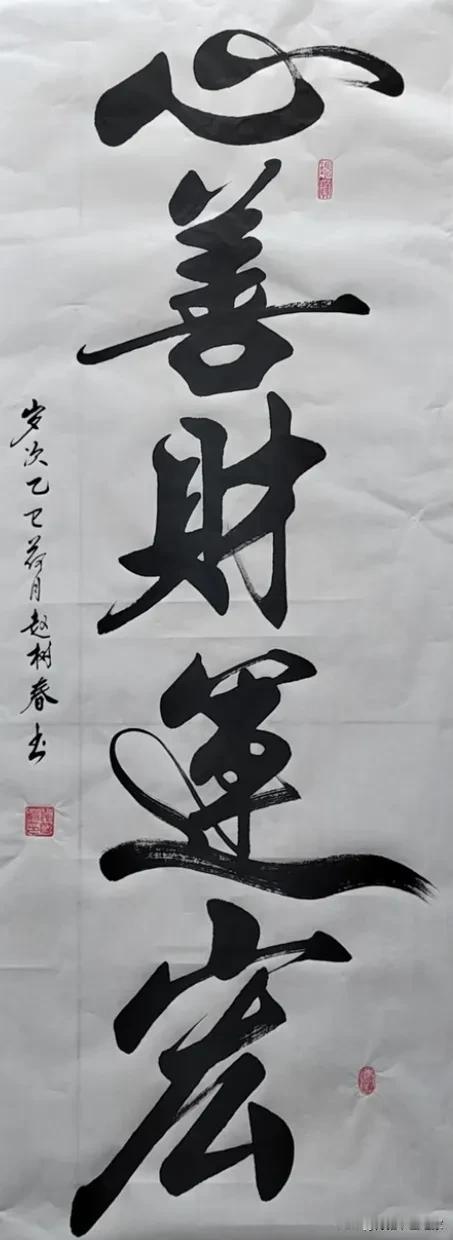 心善財運宏
岁次乙巳荷月赵树春书